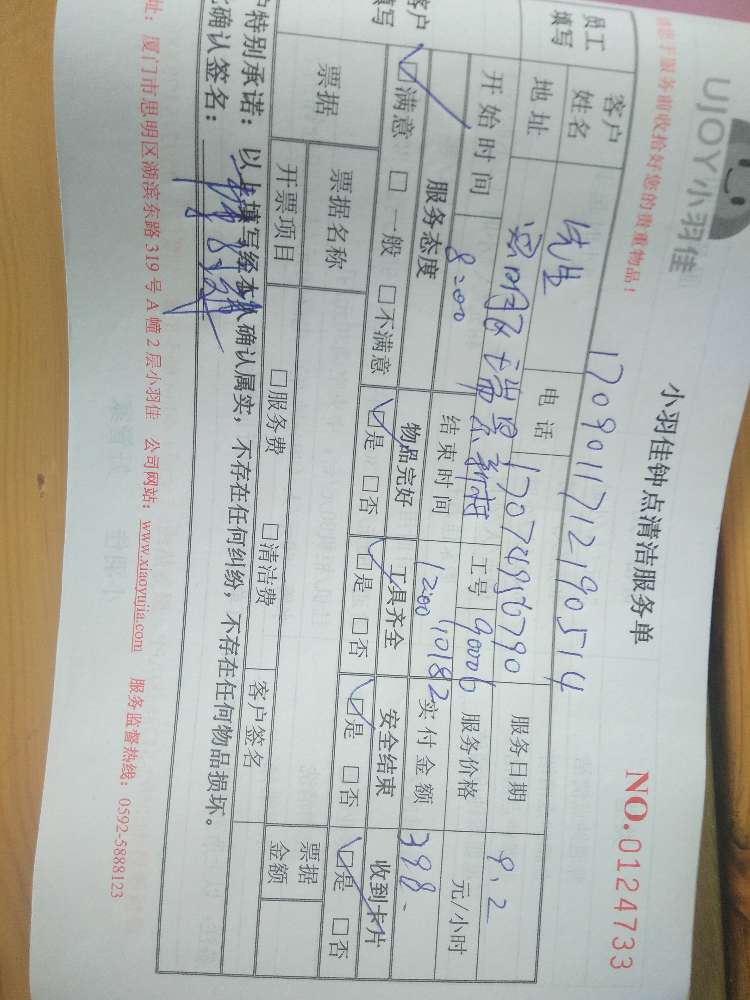 UJOY小羽佳
小羽佳钟点清洁服务单
NO.0124733
于服务前收拾好您的贵重物品!
1709011712190514
员工填写
客户姓名 先生 电话 17074956790 服务日期 9.2
地址 思明区瑞景新村 工号 90006 服务价格 元/小时
开始时间 8:00 结束时间 1200 10182 实付金额 398-
客户填写
服务态度 物品完好 工具齐全 安全结束 收到卡片
☑满意 □一般 □不满意 ☑是 □否 ☑是 □否 ☑是 □否 ☑是 □否
票据 票据名称 票据金额
开票项目 □服务费 □清洁费 客户签名
户特别承诺:以上填写经本人确认属实,不存在任何纠纷,不存在任何物品损坏。
确认签名:
址:厦门市思明区湖滨东路319号A幢2层小羽佳 公司网站:www.xiaoyujia.com 服务监督热线:0592-5888123